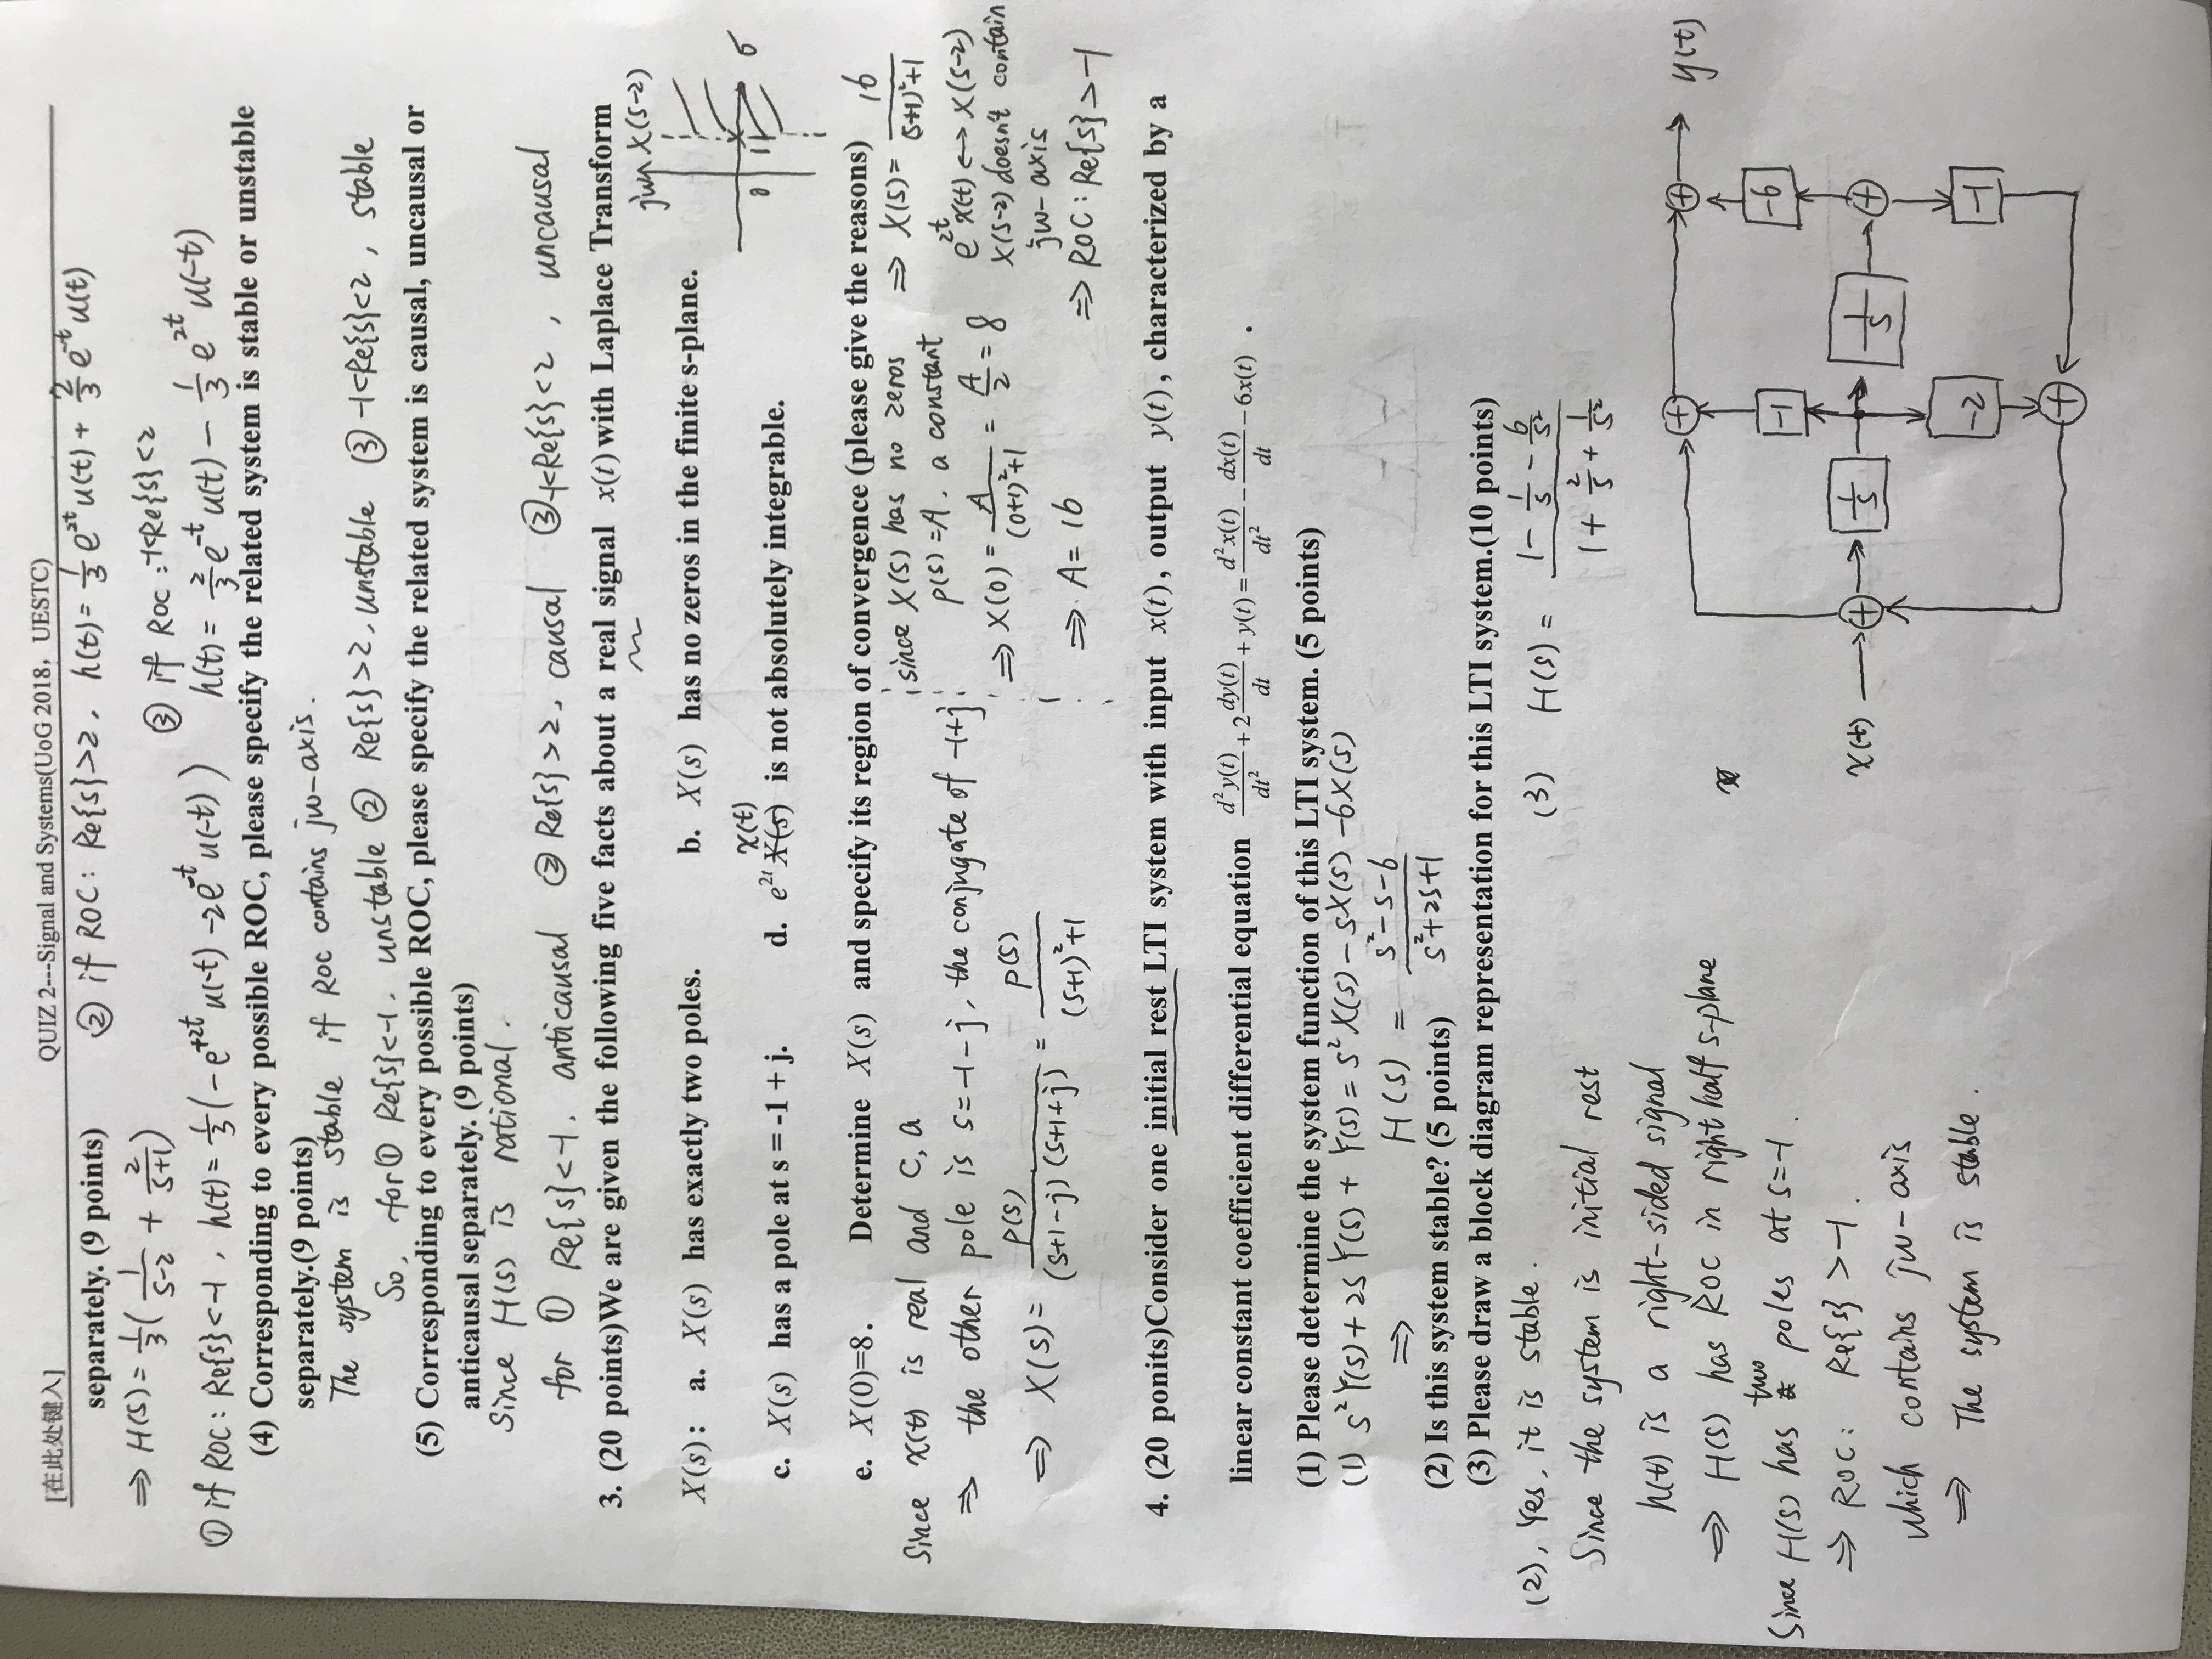 [在此处键入] QUIZ 2---Signal and Systems(UoG 2018，UESTC)
separately. (9 points) ② if ROC: Re{s}>2, h(t)= 1/3 e^{2t} u(t) + 2/3 e^{-t} u(t)
⇒ H(s) = 1/3 ( 1/(s-2) + 2/(s+1) )
③ if ROC: -1<Re{s}<2
① if ROC: Re{s}<-1, h(t)= 1/3 (-e^{+2t} u(-t) -2e^{-t} u(-t) ) h(t) = 2/3 e^{-t} u(t) - 1/3 e^{2t} u(-t)
(4) Corresponding to every possible ROC, please specify the related system is stable or unstable
separately.(9 points)
The system is stable if ROC contains jw-axis.
So, for ① Re{s}<-1. unstable ② Re{s}>2, unstable ③ -1<Re{s}<2, stable
(5) Corresponding to every possible ROC, please specify the related system is causal, uncausal or
anticausal separately. (9 points)
Since H(s) is rational.
for ① Re{s}<-1. anticausal ② Re{s}>2. causal ③ -1<Re{s}<2, uncausal
3. (20 points)We are given the following five facts about a real signal x(t) with Laplace Transform
jw X(s-2)
X(s): a. X(s) has exactly two poles. b. X(s) has no zeros in the finite s-plane.
x(t)
σ
0 1
c. X(s) has a pole at s = -1 + j. d. e^{2t} X(s) is not absolutely integrable.
e. X(0)=8. Determine X(s) and specify its region of convergence (please give the reasons)
Since x(t) is real and c, a
⇒ the other pole is s=-1-j, the conjugate of -1+j
⇒ X(s) = p(s)/((s+1-j)(s+1+j)) = p(s)/((s+1)²+1)
since X(s) has no zeros
p(s)=A. a constant
⇒ X(0) = A/((0+1)²+1) = A/2 = 8
⇒ A = 16
⇒ X(s) = 16/((s+1)²+1)
e^{2t} x(t) ↔ X(s-2)
X(s-2) doesn't contain
jw-axis
⇒ ROC: Re{s}>-1
4. (20 ponits)Consider one initial rest LTI system with input x(t), output y(t), characterized by a
linear constant coefficient differential equation d²y(t)/dt² + 2 dy(t)/dt + y(t) = d²x(t)/dt² − dx(t)/dt − 6x(t) .
(1) Please determine the system function of this LTI system. (5 points)
(1) s²Y(s)+2sY(s)+Y(s) = s²X(s)-sX(s)-6X(s)
⇒ H(s) = (s²-s-6)/(s²+2s+1)
(2) Is this system stable? (5 points)
(3) Please draw a block diagram representation for this LTI system.(10 points)
(2), Yes, it is stable.
Since the system is initial rest
h(t) is a right-sided signal
⇒ H(s) has ROC in right half s-plane
two
Since H(s) has poles at s=-1.
⇒ ROC: Re{s}>-1.
which contains jw-axis
⇒ The system is stable.
(3) H(s) = (1 - 1/s - 6/s²)/(1 + 2/s + 1/s²)
+ + y(t)
-1 -6
x(t) + 1/s 1/s +
-2 -1
+